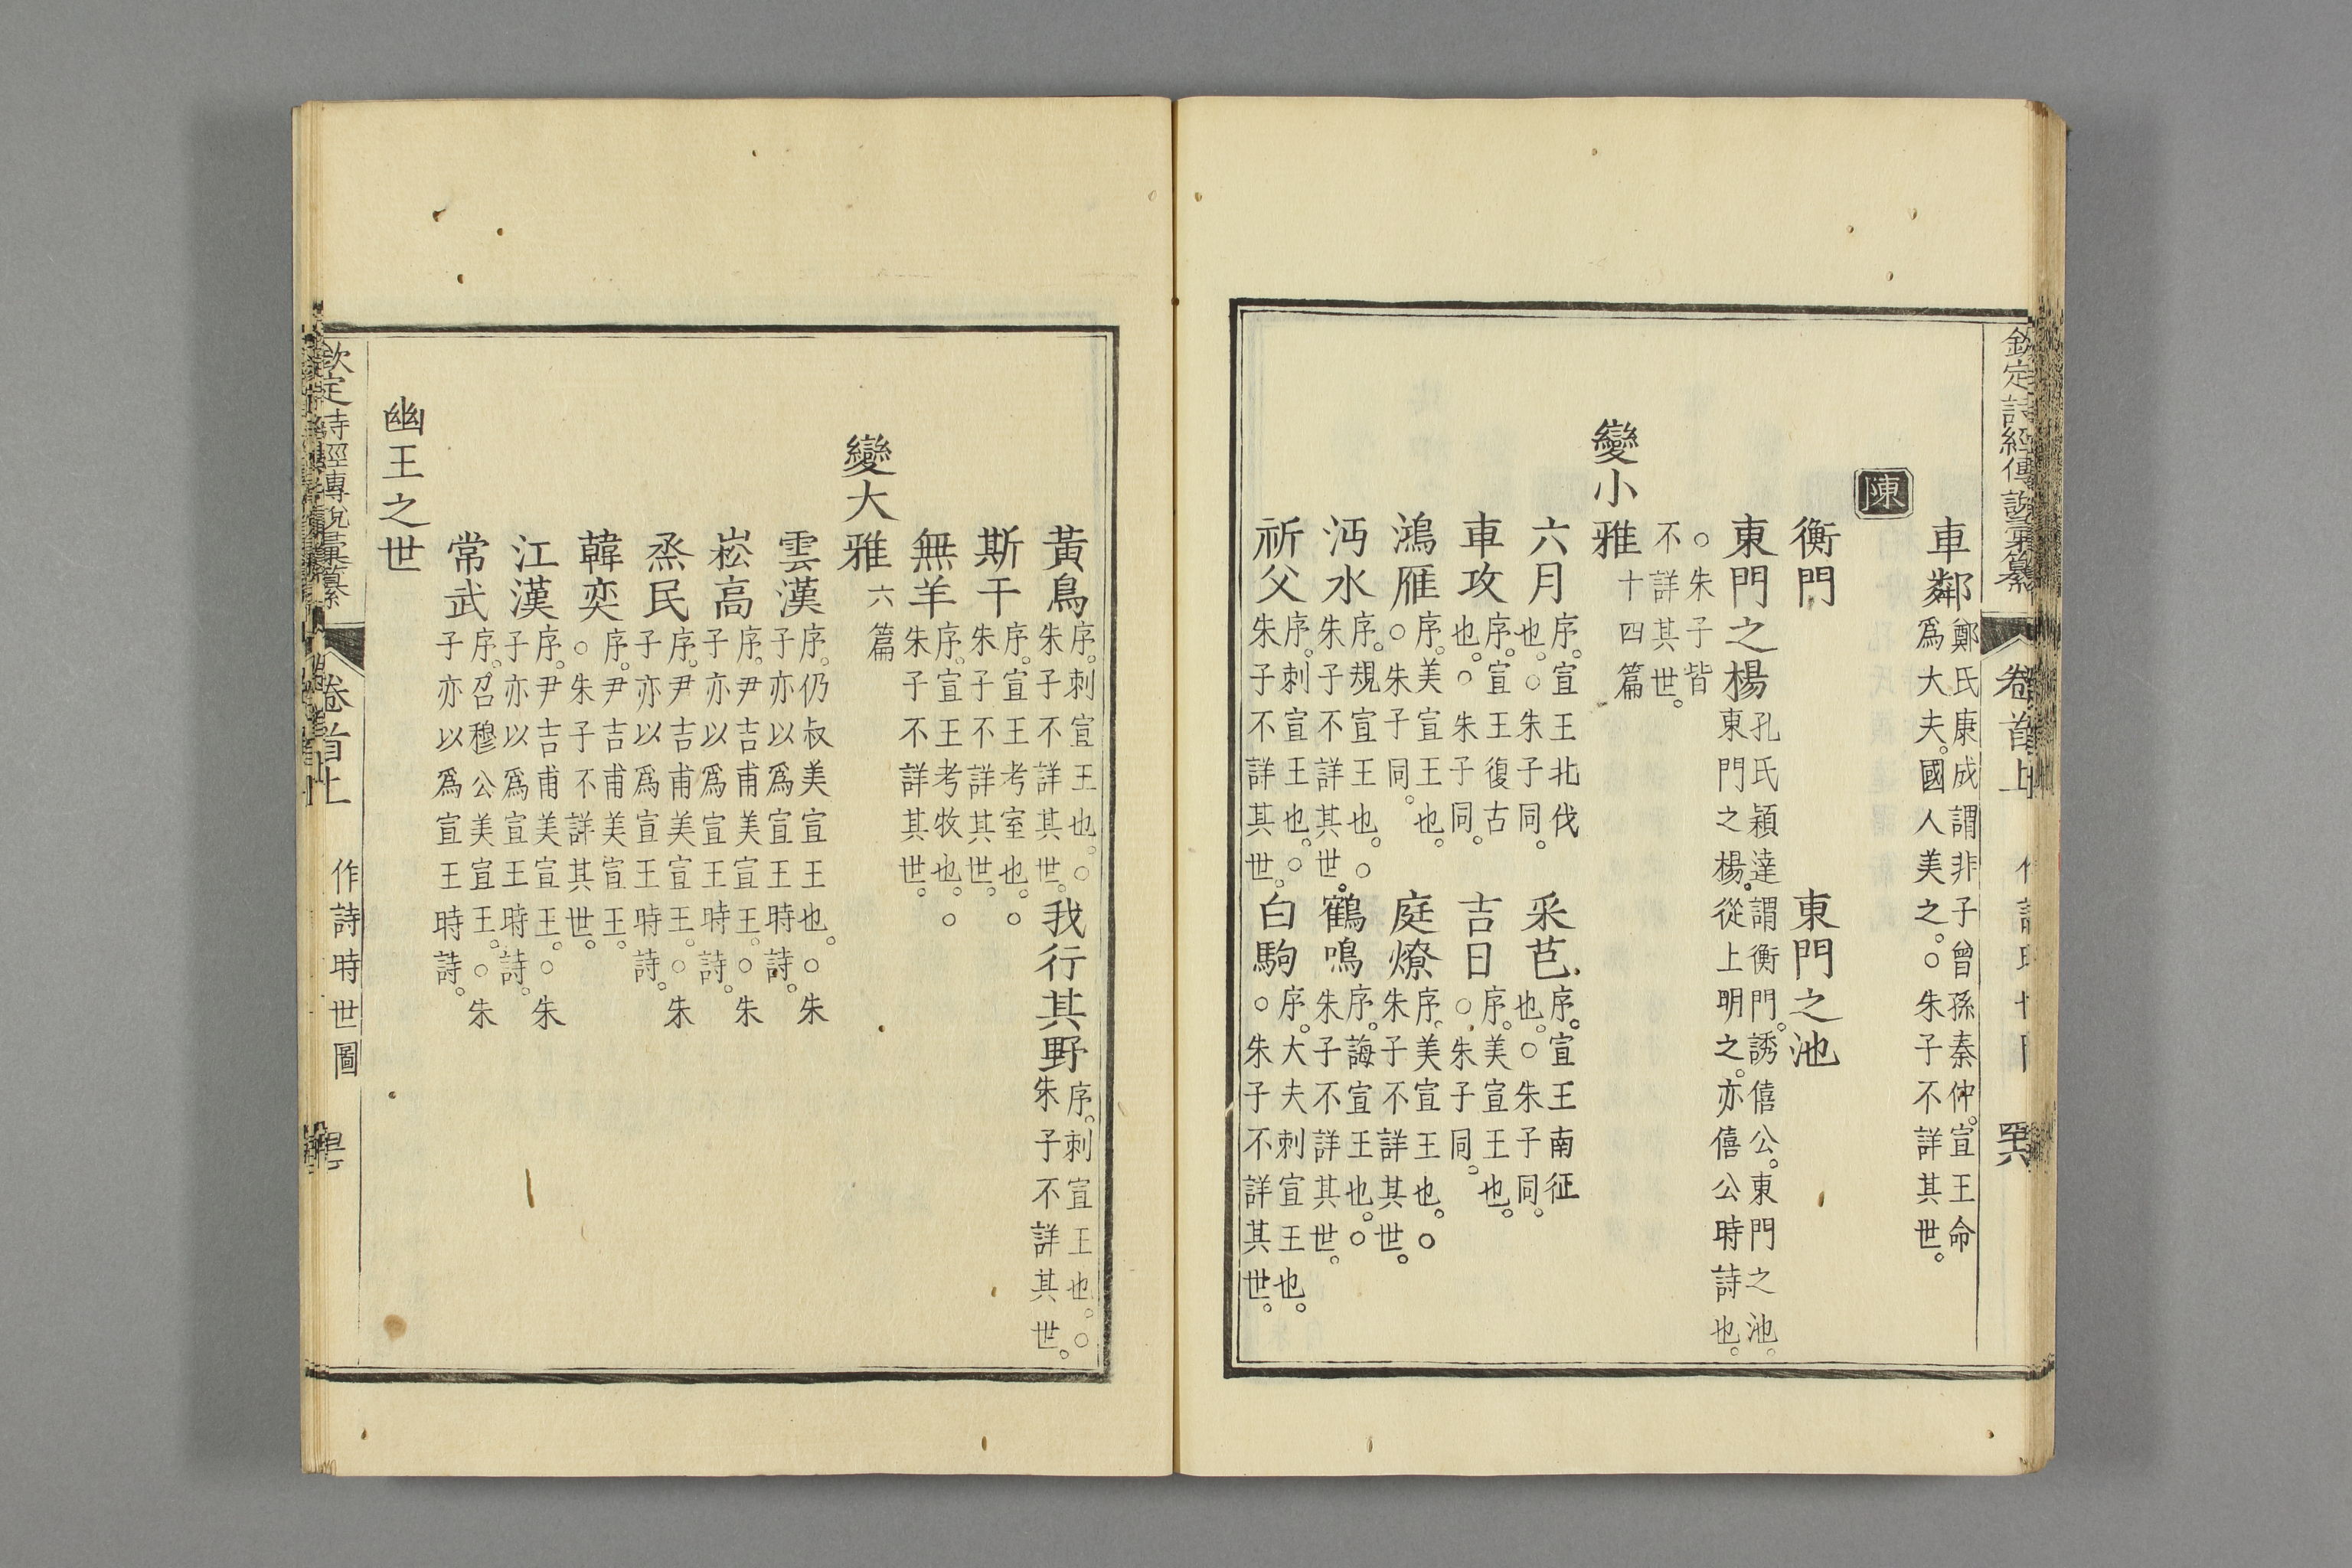 欽定詩經傳說彙纂 卷首上
車鄰 鄭氏康成謂非子曾孫秦仲。宣王命爲大夫。國人美之。○朱子不詳其世。
陳
衡門 東門之池
東門之楊 孔氏穎達謂衡門。誘僖公。東門之池。東門之楊。從上明之。亦僖公時詩也。
○朱子皆不詳其世。
變小雅 十四篇
六月 序。宣王北伐也。○朱子同。 采芑 序。宣王南征也。○朱子同。
車攻 序。宣王復古也。○朱子同。 吉日 序。美宣王也。○朱子同。
鴻雁 序。美宣王也。○朱子同。 庭燎 序。美宣王也。○朱子不詳其世。
沔水 序。規宣王也。○朱子不詳其世。 鶴鳴 序。誨宣王也。○朱子不詳其世。
祈父 序。刺宣王也。○朱子不詳其世。 白駒 序。大夫刺宣王也。○朱子不詳其世。
黃鳥 序。刺宣王也。○朱子不詳其世。 我行其野 序。刺宣王也。○朱子不詳其世。
斯干 序。宣王考室也。○朱子不詳其世。
無羊 序。宣王考牧也。○朱子不詳其世。
變大雅 六篇
雲漢 序。仍叔美宣王也。○朱子亦以爲宣王時詩。
崧高 序。尹吉甫美宣王。○朱子亦以爲宣王時詩。
烝民 序。尹吉甫美宣王。○朱子亦以爲宣王時詩。
韓奕 序。尹吉甫美宣王。○朱子不詳其世。
江漢 序。尹吉甫美宣王。○朱子亦以爲宣王時詩。
常武 序。召穆公美宣王。○朱子亦以爲宣王時詩。
幽王之世
欽定詩經傳說彙纂 卷首上 作詩時世圖